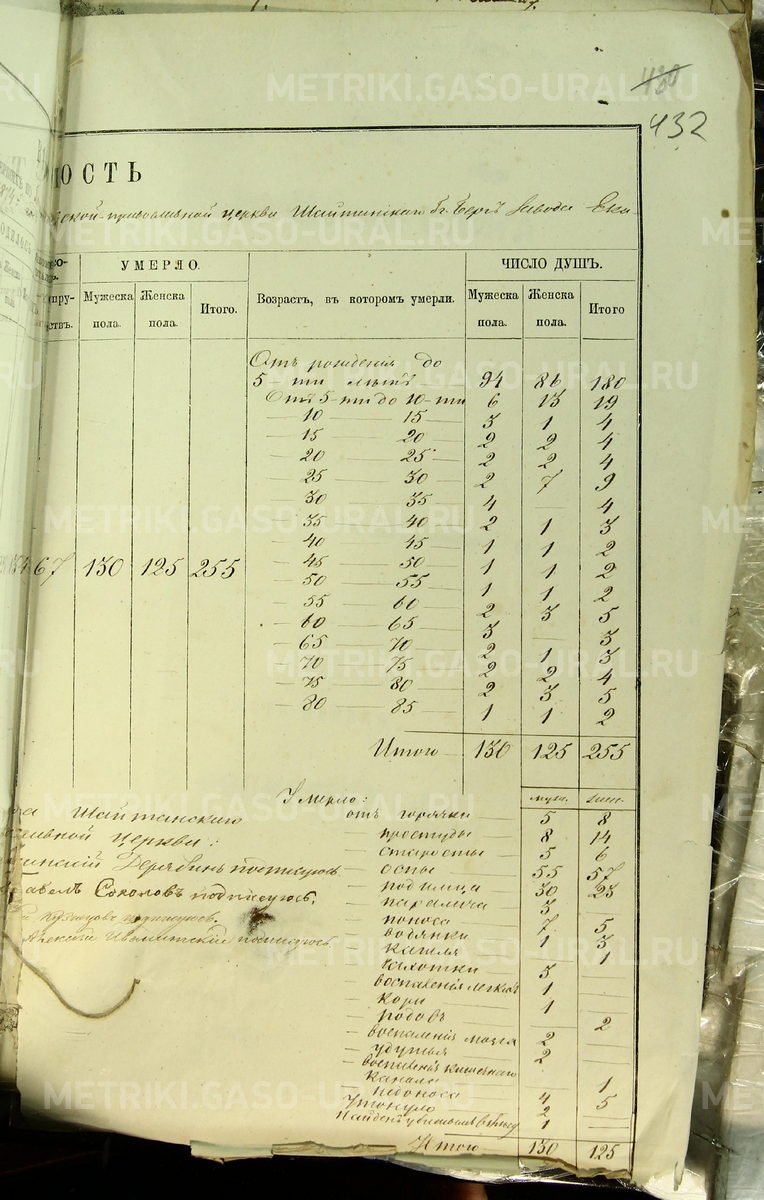 480
432
ОСТЬ
ской-православной церкви Шайтанскаго Ека-
УМЕРЛО.
ЧИСЛО ДУШЪ.
Мужеска пола.
Женска пола.
Итого.
Возрастъ, въ которомъ умерли.
Мужеска пола.
Женска пола.
Итого
Отъ рожденія до
5-ти лѣтъ 94 86 180
Отъ 5-ти до 10-ти 6 13 19
— 10 — 15 — 3 1 4
— 15 — 20 — 2 2 4
— 20 — 25 — 2 2 4
— 25 — 30 — 2 7 9
— 30 — 35 — 4 — 4
— 35 — 40 — 2 1 3
— 40 — 45 — 1 1 2
— 45 — 50 — 1 1 2
67 130 125 255
— 50 — 55 — 1 1 2
— 55 — 60 — 2 3 5
— 60 — 65 — 3 — 3
— 65 — 70 — 2 1 3
— 70 — 75 — 2 2 4
— 75 — 80 — 2 3 5
— 80 — 85 — 1 1 2
Итого — 130 125 255
Умерло: муж. жен.
Шайтанскаго
отъ горячки 5 8
церкви:
— простуды 8 14
— старости 5 6
Дерябинъ подписуюсь
— оспы 55 57
Павелъ Соколовъ подписуюсь.
— родимца 30 23
— паралича 3
подписуюсь.
— поноса 7 5
Алексій подписуюсь.
— водянки 1 3
— кашля 1
— чахотки 3 —
— воспаленія легкихъ 1 —
— кори 1 —
— родовъ — 2
— воспаленія мозга 2 —
— удушья 2
— воспаленія кишечнаго
канала 1
— недоноса 4 5
Утонуло 2
1 —
Итого 130 125
METRIKI.GASO-URAL.RU